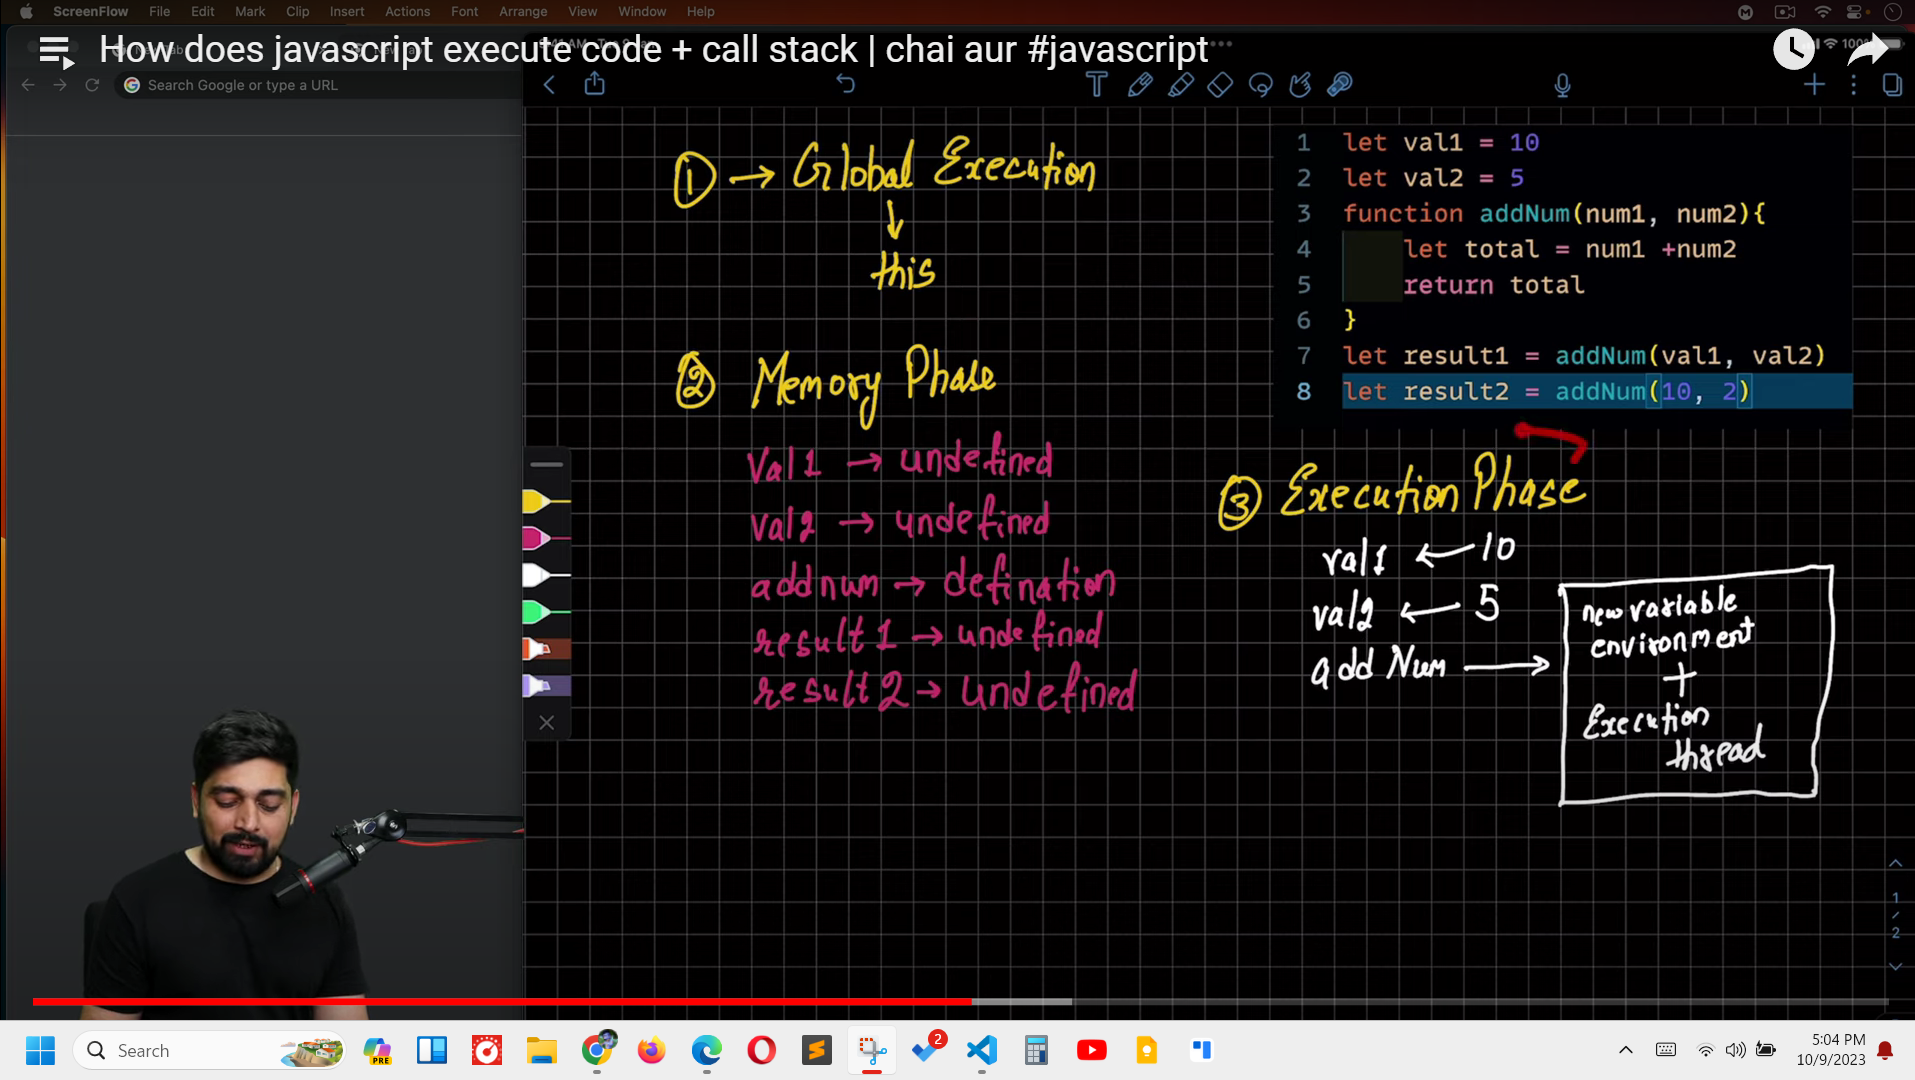 ScreenFlow File Edit Mark Clip Insert Actions Font Arrange View Window Help
How does javascript execute code + call stack | chai aur #javascript
100%
Search Google or type a URL
1 → Global Execution
↓
this
2 Memory Phase
Val1 → undefined
val2 → undefined
addnum → defination
result1 → undefined
result2 → undefined
1 let val1 = 10
2 let val2 = 5
3 function addNum(num1, num2){
4 let total = num1 +num2
5 return total
6 }
7 let result1 = addNum(val1, val2)
8 let result2 = addNum(10, 2)
3 Execution Phase
val1 ← 10
val2 ← 5
add Num →
new variable
environment
+
Execution
thread
1
/
2
Search
PRE
2
5:04 PM
10/9/2023